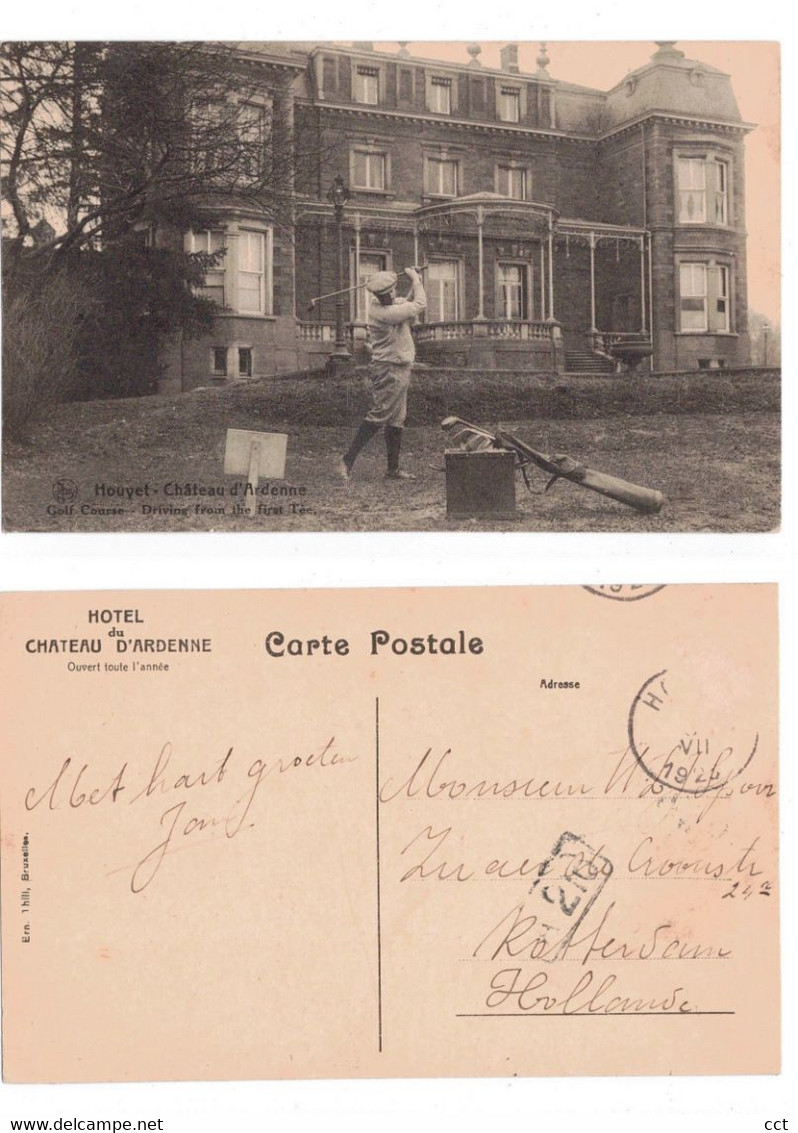 Houyet - Château d'Ardenne
Golf Course - Driving from the first Tee.
HOTEL
du
CHATEAU D'ARDENNE
Ouvert toute l'année
Carte Postale
Adresse
VII
Met hart groeten
Monsieur
Rotterdam
Hollande
Ern. Thill, Bruxelles.
www.delcampe.net
cct